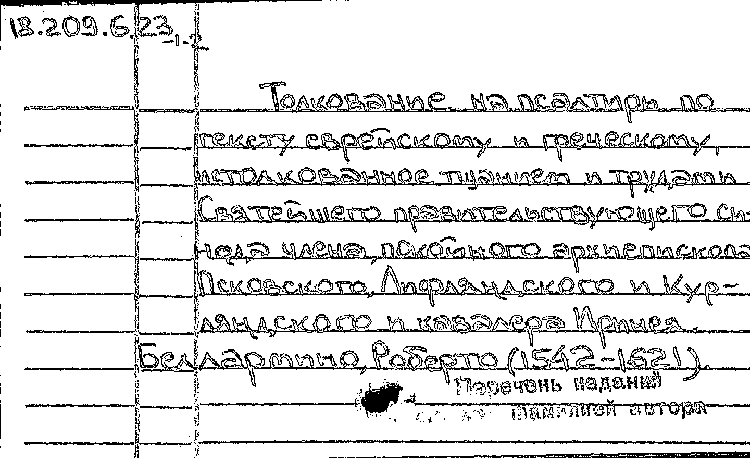 18.209.6.23
-1-2
Толкование на псалтирь по
тексту еврейскому и греческому,
истолкованное тщанием и трудами
Святейшего правительствующего си-
нода члена, покойного архиепископа
Псковского, Лифляндского и Кур-
ляндского и кавалера Иринея.
Беллармино, Роберто (1542-1621).
Перечень изданий
фамилией автора